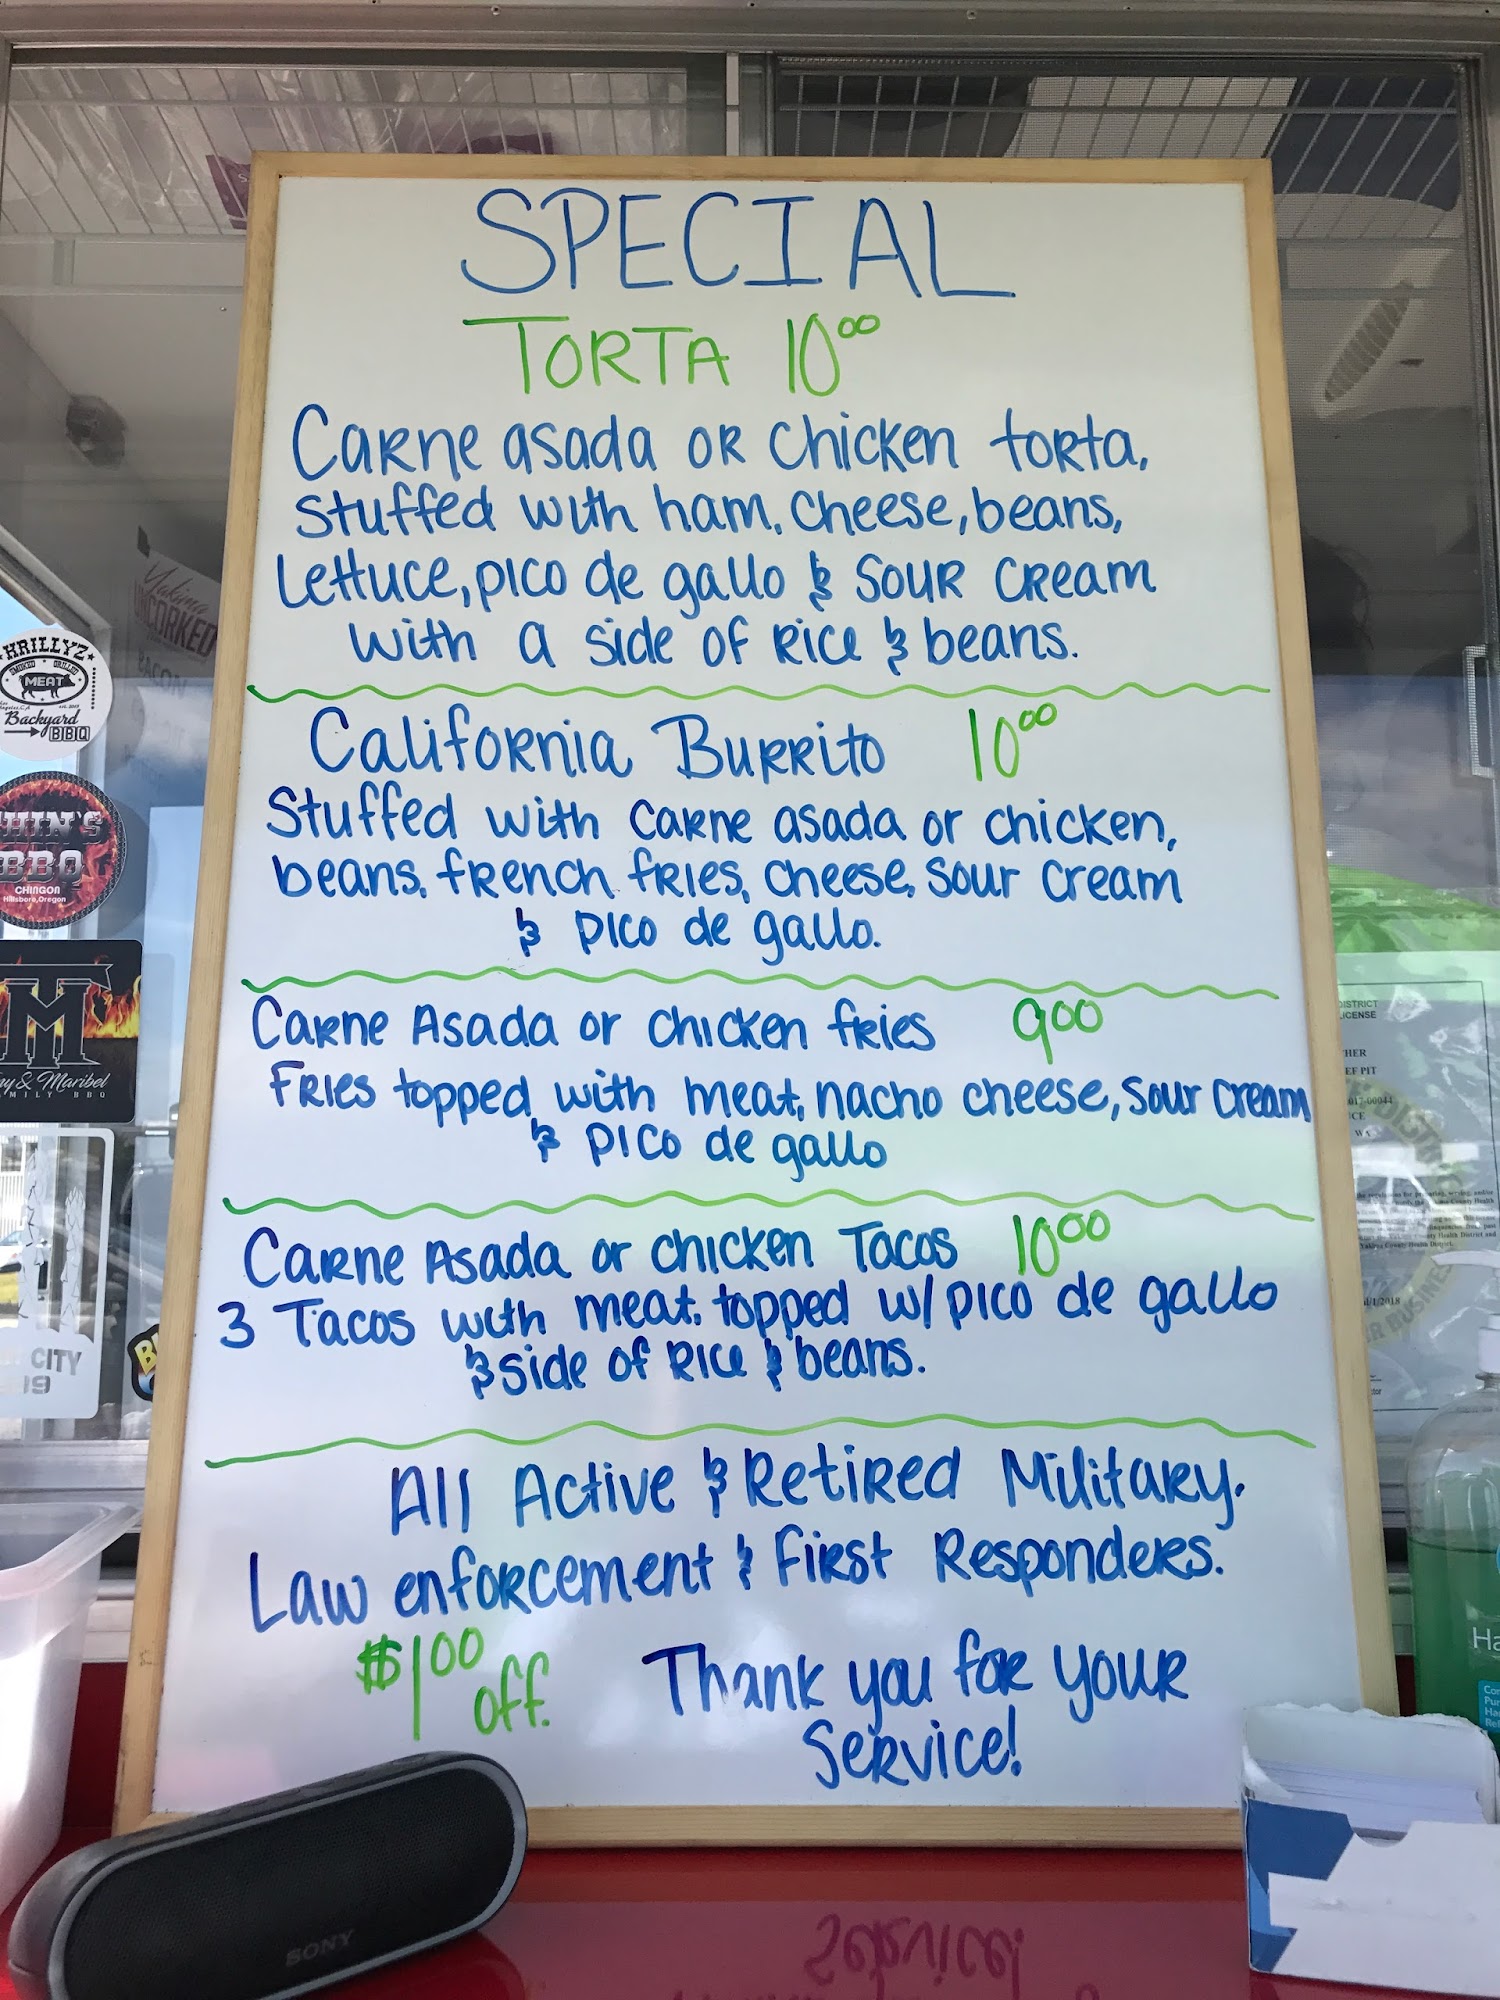 SPECIAL
TORTA 10⁰⁰
Carne asada or chicken torta,
stuffed with ham, cheese, beans,
lettuce, pico de gallo & sour cream
with a side of rice & beans.
California Burrito 10⁰⁰
Stuffed with carne asada or chicken,
beans, french fries, cheese, sour cream
& pico de gallo.
Carne Asada or chicken fries 9⁰⁰
Fries topped with meat, nacho cheese, sour cream
& pico de gallo
Carne Asada or chicken Tacos 10⁰⁰
3 Tacos with meat, topped w/ pico de gallo
& side of rice & beans.
All Active & Retired Military.
Law enforcement & First Responders.
$1⁰⁰ off.
Thank you for your
Service!
KRILLYZ
SMOKED GRILLED
MEAT
Backyard
BBQ
BBQ
CHINGON
Hillsboro, Oregon
M
& Maribel
FAMILY BBQ
CITY
Yakima
UNCORKED
BACON
SONY
DISTRICT
LICENSE
Service!